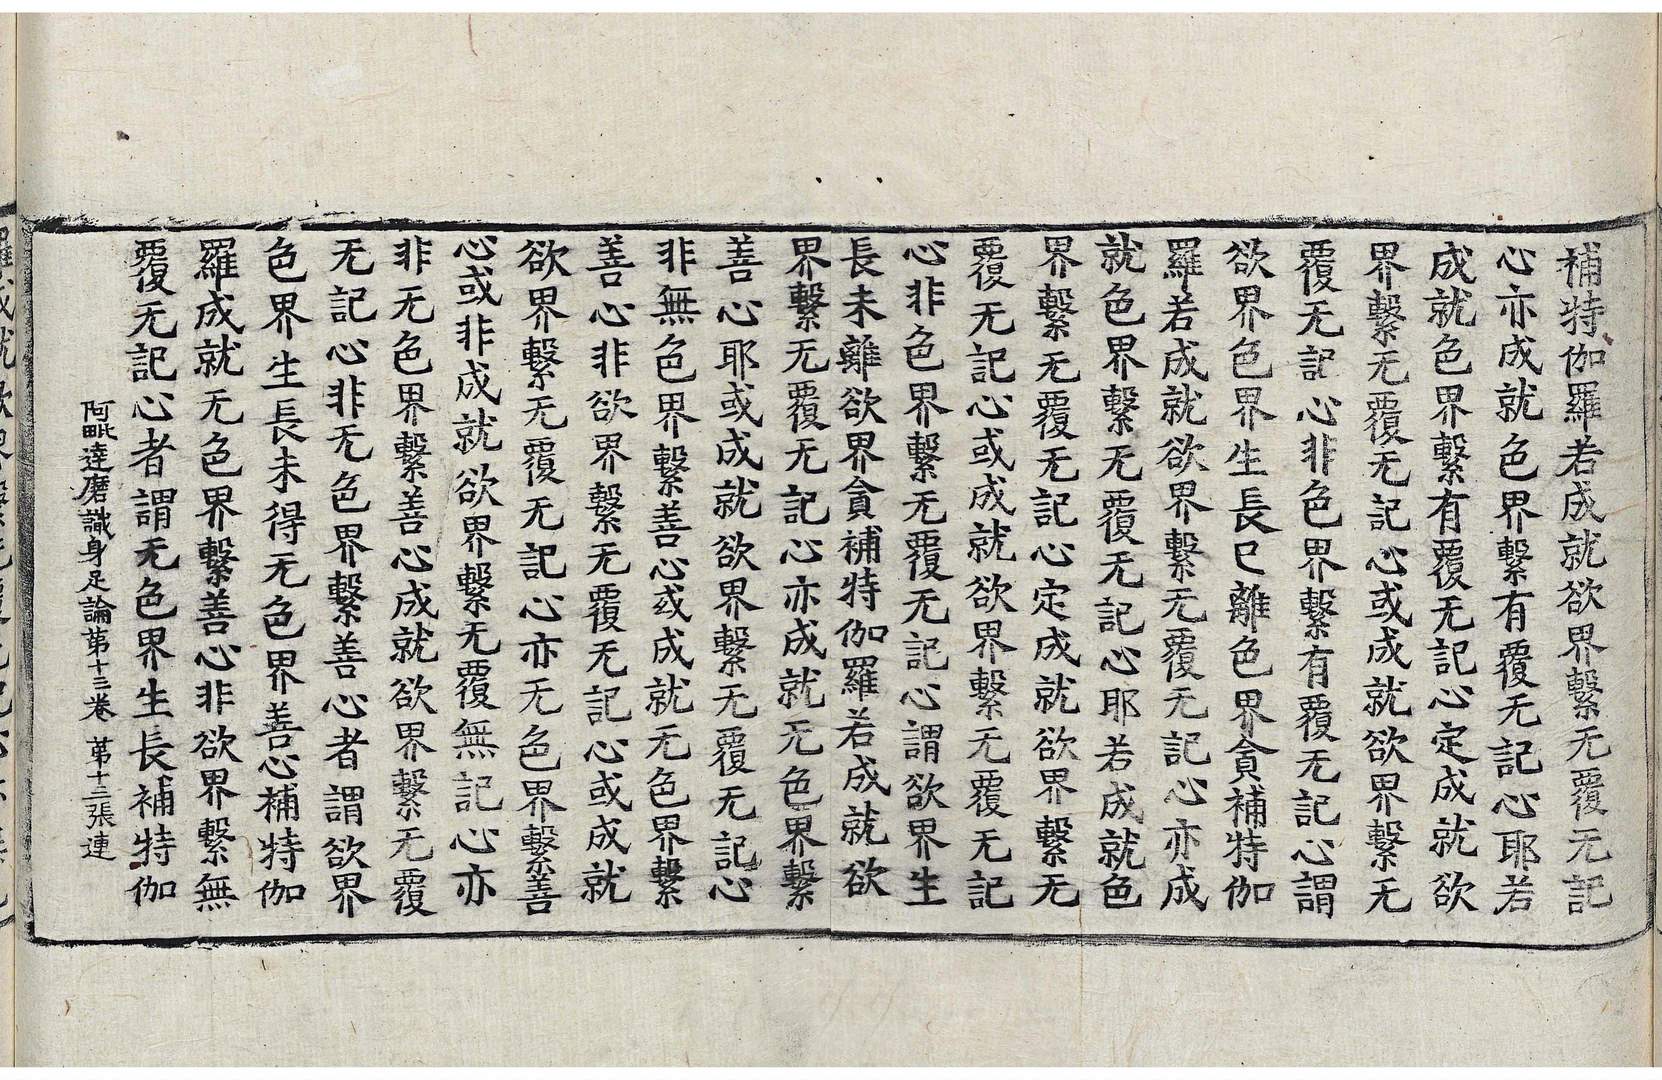 補特伽羅若成就欲界繫无覆无記
心亦成就色界繫有覆无記心耶若
成就色界繫有覆无記心定成就欲
界繫无覆无記心或成就欲界繫无
覆无記心非色界繫有覆无記心謂
欲界色界生長已離色界貪補特伽
羅若成就欲界繫无覆无記心亦成
就色界繫无覆无記心耶若成就色
界繫无覆无記心定成就欲界繫无
覆无記心或成就欲界繫无覆无記
心非色界繫无覆无記心謂欲界生
長未離欲界貪補特伽羅若成就欲
界繫无覆无記心亦成就无色界繫
善心耶或成就欲界繫无覆无記心
非無色界繫善心或成就无色界繫
善心非欲界繫无覆无記心或成就
欲界繫无覆无記心亦无色界繫善
心或非成就欲界繫无覆無記心亦
非无色界繫善心成就欲界繫无覆
无記心非无色界繫善心者謂欲界
色界生長未得无色界善心補特伽
羅成就无色界繫善心非欲界繫無
覆无記心者謂无色界生長補特伽
阿毗達磨識身足論第十三卷 第十三張 連